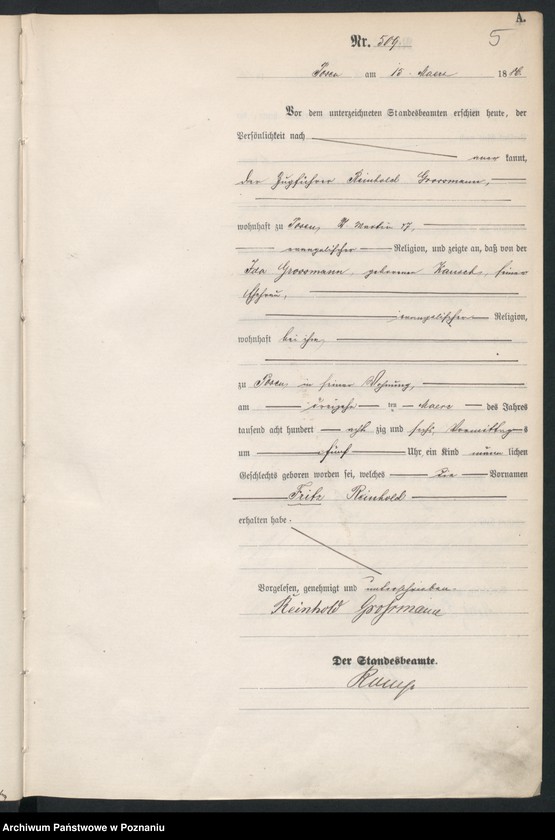 A.
5
Nr. 509.
Posen am 15. Maerz 1886.
Vor dem unterzeichneten Standesbeamten erschien heute, der
Persönlichkeit nach
kannt,
der Zugführer Reinhold Grossmann,
wohnhaft zu Posen, St Martin 57,
evangelischer Religion, und zeigte an, daß von der
Ida Grossmann, geborenen Kausch, seiner
Ehefrau,
evangelischer Religion,
wohnhaft bei ihm,
zu Posen, in seiner Wohnung,
am dreizehn ten Maerz des Jahres
tausend acht hundert acht zig und sechs, Vormittags
um fünf Uhr ein Kind männ lichen
Geschlechts geboren worden sei, welches die Vornamen
Fritz Reinhold
erhalten habe.
Vorgelesen, genehmigt und unterschrieben.
Reinhold Großmann
Der Standesbeamte.
Archiwum Państwowe w Poznaniu